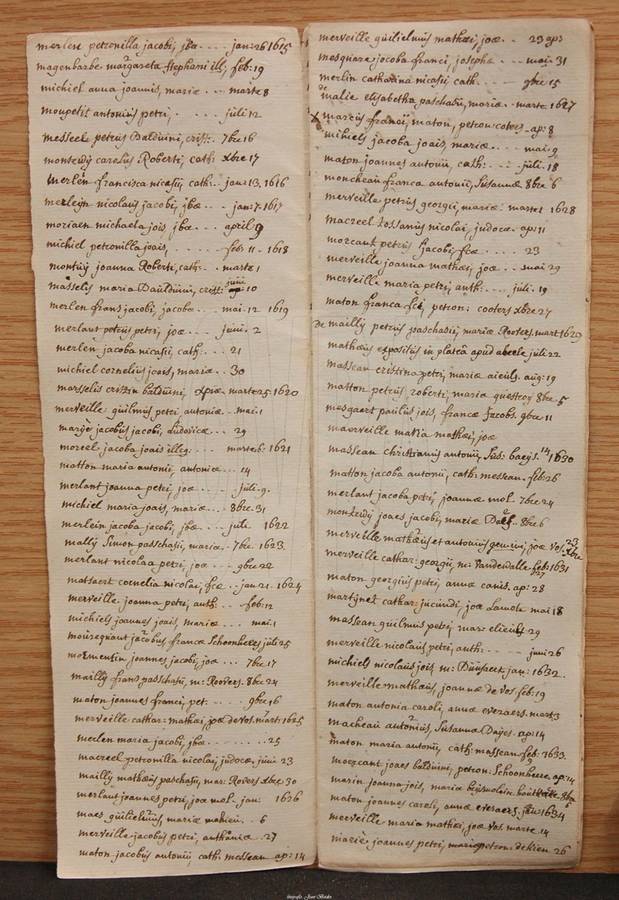 merlen petronilla jacobi, jba.... jan: 26 1615
magenbarbe margareta stephani ill, feb: 19
michiel anna joannis, mariæ - - - marte 8
moupetit antonius petri, . . . . juli 12
messeele petrus Balduini, crist: 7bre 16
monteudj carolus Roberti, cath: xbre 17
merlen francisca nicasii, cath:. jan: 13. 1616
merleijn nicolaus jacobi, jbæ... jan: 7. 1617
moriaen michaela jois, jbæ... april 9
michiel petronilla joais, . . . . feb: 11 - 1618
montuij joanna Roberti, cath: - marte 1
masselis maria Balduini, crist: junii 10
merlen frans jacobi, jacobæ... mai. 12 1619
merlant petrus petri, joæ... junii. 2
merlen jacoba nicasii, cath:.. 21
michiel cornelius joais, mariæ.. 30
marselis cristin balduini, xpinæ marte 25. 1620
merveille guilmus petri antoniæ.. mai. 1
marije jacobus jacobi, Ludovicæ.. 29
moreel jacoba joais illeg:... marte 6. 1621
matton maria antonii, antoniæ... 14
merlant joanna petri, joæ... juli. 9.
michiel maria joais, mariæ... 8bre. 31
merlein jacoba jacobi, jbæ... juli. 1622
mallij Simon passchasii, mariæ. 7bre. 1623.
merlant nicolaa petri, joæ... 9bre 22
mattaert cornelia nicolai, fcæ.. jan 21. 1624
merveille joanna petri, anth:.. feb: 12
michiels joannes joais, mariæ... mai 1
mouregnaut jacobus francæ Schoonheere juli 25
mormentin joannes jacobi, joæ... 7bre. 17
mailly frans paschasii, m: Roovers. 8bre 24
maton joannes franci, pet:... 9bre 16
merveille cathar: mathæi, joæ de vos. mart: 1625
merlen maria jacobi, jbæ........ 25
macreel petronilla nicolai, judocæ, junii 23
mailly mathæus paschasii, mar: Rovers xbre 30
merlant joannes petri, joæ mol. jan: 1626
maes guilielmus, mariæ mahieu.. 6
merveille jacobus petri, anthoniæ. 27
maton jacobus antonii, cath: messean. ap: 14
merveille guilielmus mathæi, joæ.. 29 ap:
mesquare jacoba franci, josephæ... mai: 31
merlin catharina nicasii cath:... 9bre 15
de malie elisabetha paschasii, mariæ.. marte 1627
x mareus francii, maton, petron: coters. ap: 8
mihiels jacoba joais, mariæ... mai. 9
maton joannes antonii, cath:... juli. 18
moncheau franca antonii, Susannæ 8bre 6
merveille petrus georgii, mariæ: marte 1 1628
macreel Jossanus nicolai, judocæ. ap: 11
morcant petrus jacobi, fcæ... 23
merveille joanna mathæi, joæ.. mai 29
merveille maria petri, anth:... juli. 19
maton franca fci, petron: cooters xbre 27
De mailly petrus paschasii, mariæ Roovers. mart 1629
mathæus expositus in plateâ apud abeele juli 22
massean cristina petri, mariæ aieuls. aug: 19
matton petrus roberti, maria questroy 8bre. 5
mesgaert paulus jois, francæ Jacobs. 9bre 11
maverveille maria mathæi, joæ
massean christianus antonii, Sus: baeys. 14 1630
matton jacoba antonii, cath: messean. feb: 26
merlant jacoba petri, joannæ mol. 7bre 24
monteudj joaes jacobi, mariæ 8bre 6
merveille mathæus et antonius gemini, joæ vos. 23 xbre
merveille cathar: georgii, m: Vandewalle feb: 1631
maton georgius petri, annæ canis. ap: 28
martijnet cathar: jucundi, joæ mai 18
massean guilmus petri, mar: 29
merveille nicolaus petri, anth:.... juni 26
michiels nicolaus jois, m: jan: 1632.
merveille mathæus, joannæ de vos. feb: 19
maton antonia caroli, annæ everaers. mart: 3
macheau antonius, Susannæ Dayes. ap: 14
maton maria antonii, cath: massean. feb: 3. 1633.
morcant joaes balduini, petron: Schoonheere, ap: 14
marin joanna jois, mariæ
maton joannes caroli, annæ everaers, jan: 1634
merveille maria mathæi, joæ vos. marte. 14
marie joannes petri, mariæ petron: dekien 26